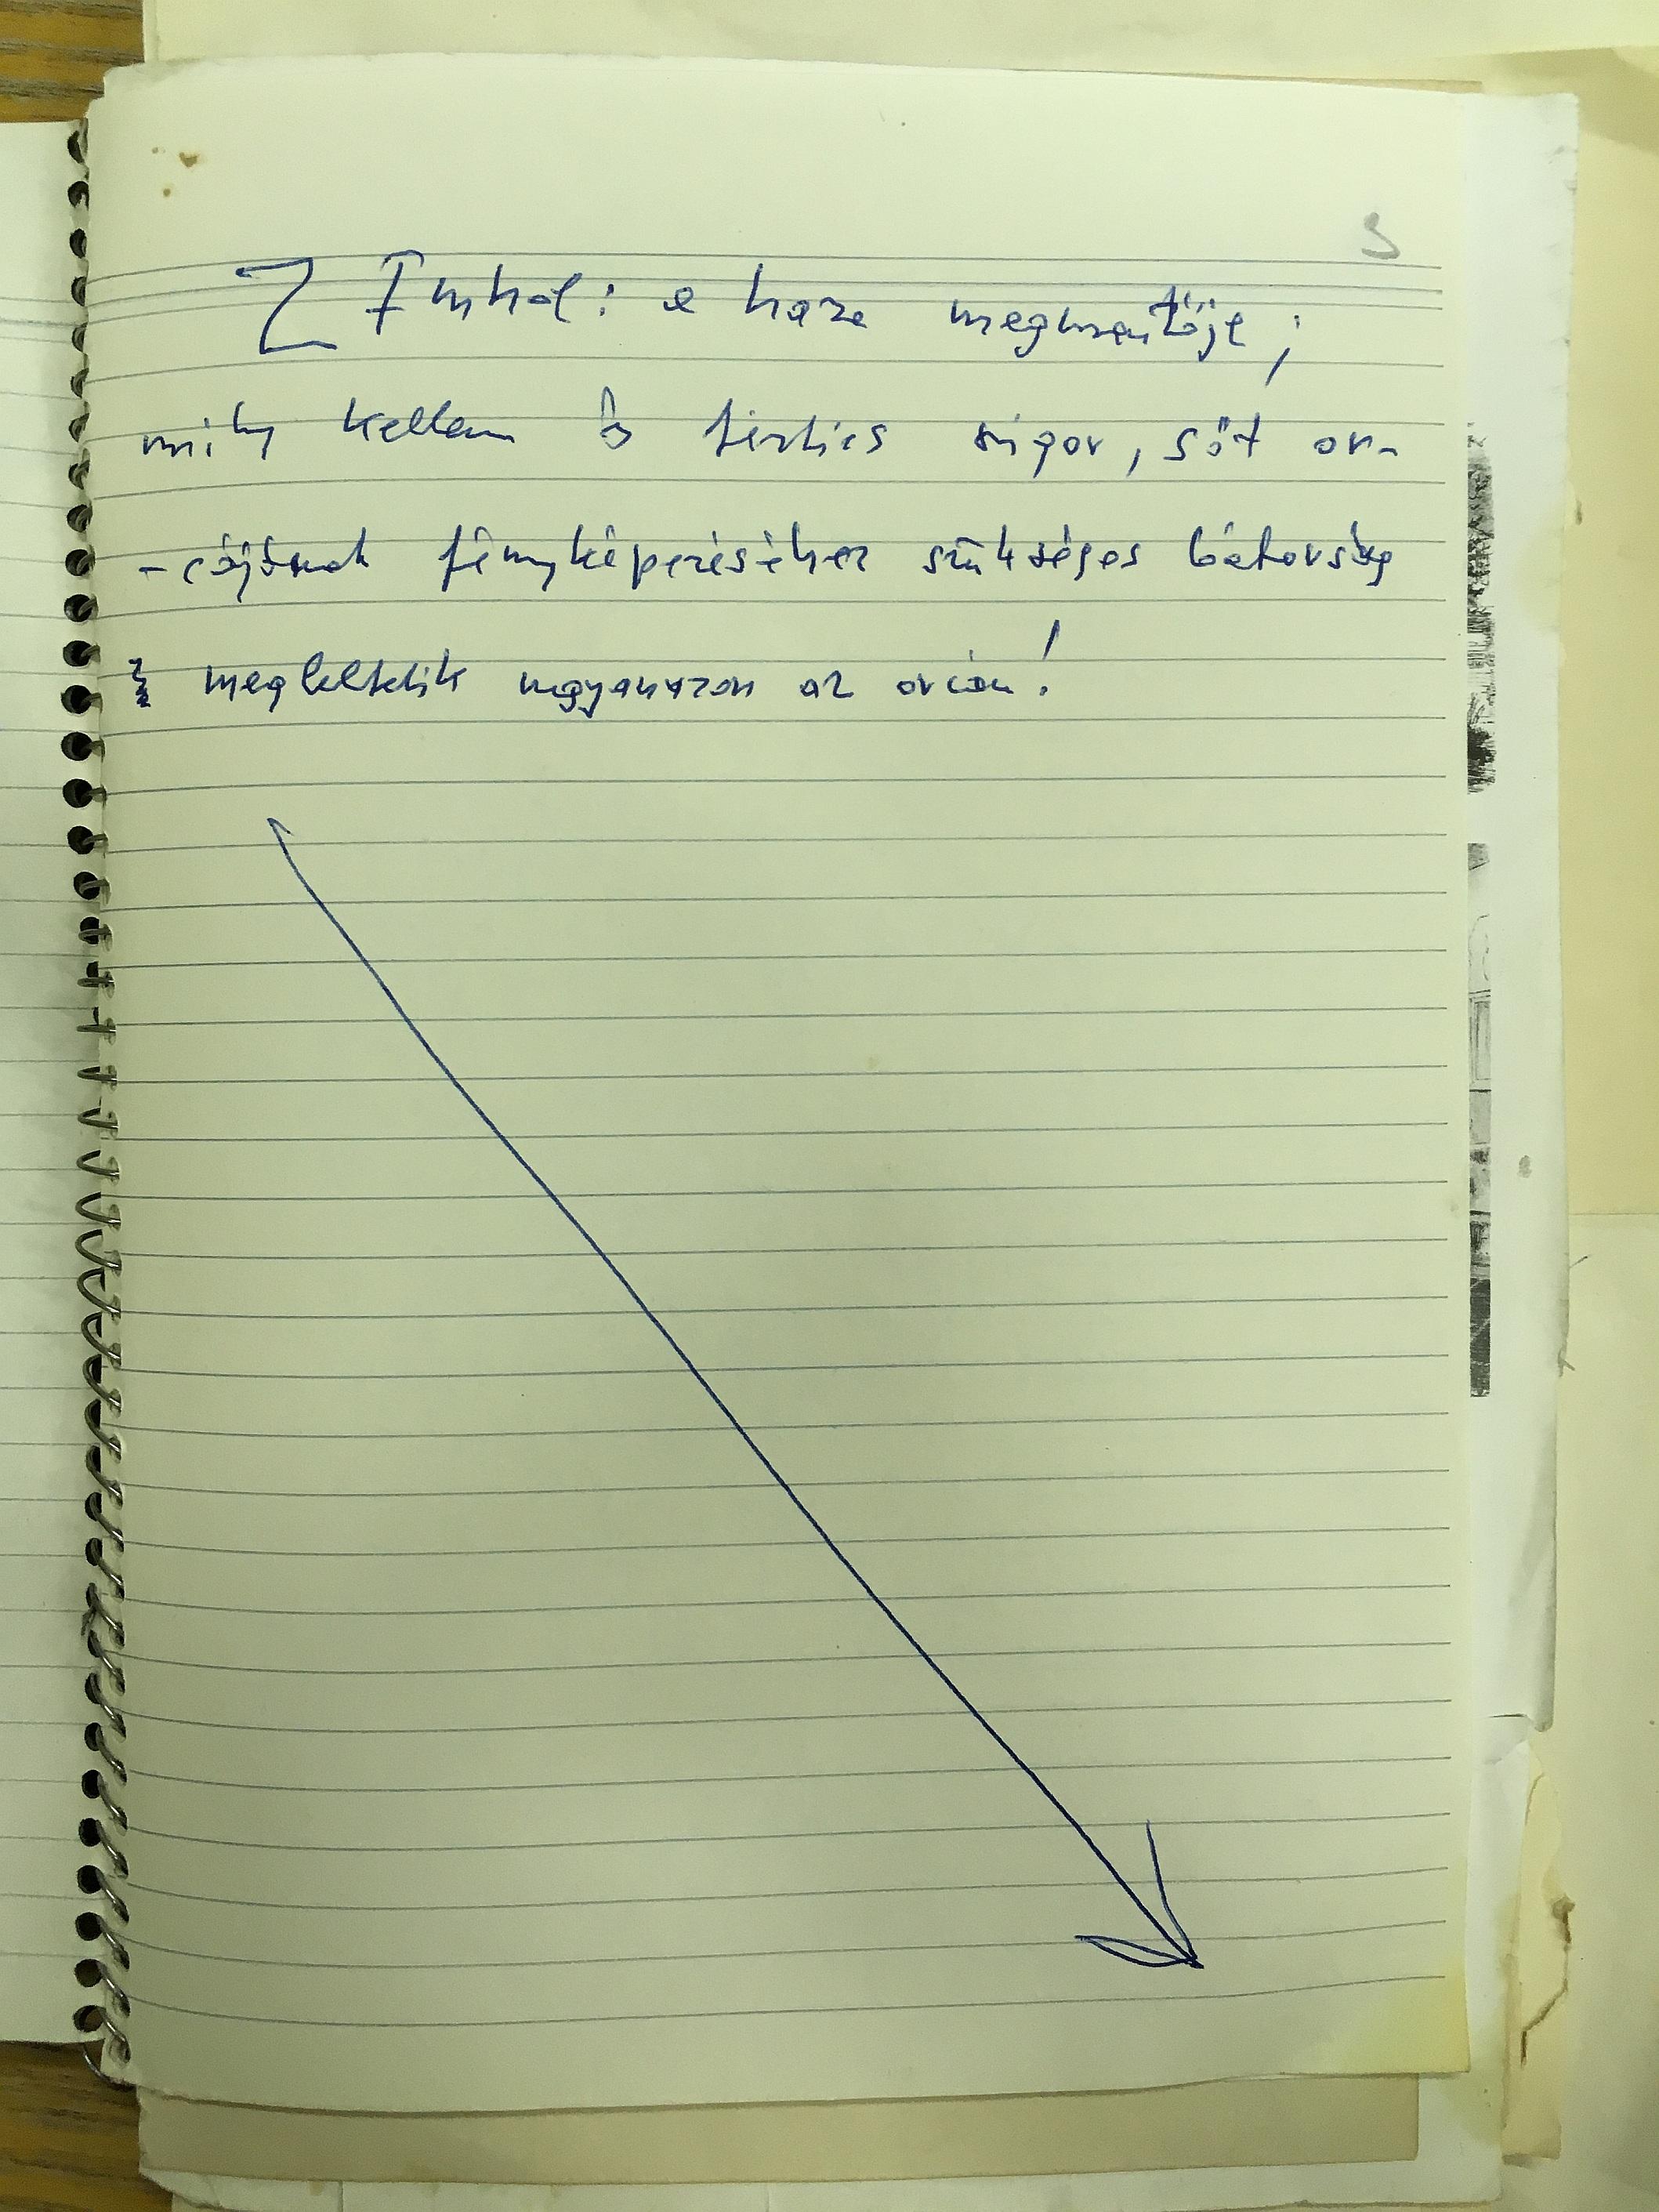 3
Imhol: a haza megmentője;
mily kellem & férfias rigor, sőt or-
-cájának fényképezéséhez szükséges bátorság
megleltetik ugyanazon az orcán!